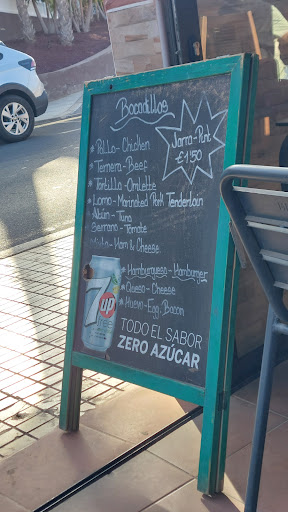 Bocadillos
Jarra-Pint
€1'50
* Pollo - Chicken
* Ternera - Beef
* Tortilla - Omlette
* Lomo - Marinated Pork Tenderloin
* Atún - Tuna
* Serrano - Tomate
* Mixto - Ham & Cheese
* Hamburguesa - Hamburger
* Queso - Cheese
* Huevo - Egg, Bacon
7up
TODO EL SABOR
ZERO AZÚCAR